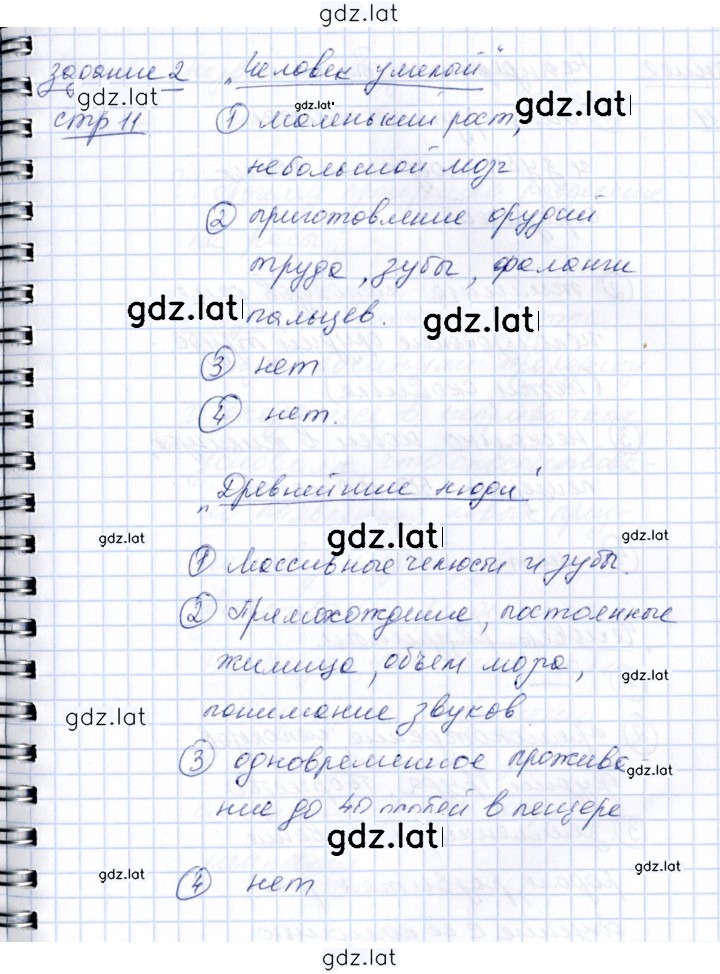 gdz.lat
задание 2 „Человек умелый"
gdz.lat
стр 11 ① маленький рост,
gdz.lat gdz.lat
небольшой мозг
② приготовление орудий
труда, зубы, фаланги
gdz.lat пальцев. gdz.lat
③ нет
④ нет.
„Древнейшие люди"
gdz.lat gdz.lat gdz.lat
① Массивные челюсти и зубы.
② Прямохождение, постоянные
жилища, объем мозга,
gdz.lat
gdz.lat понимание звуков.
③ одновременное прожива
gdz.lat
ние до 40 особей в пещере
gdz.lat
gdz.lat gdz.lat
④ нет
gdz.lat